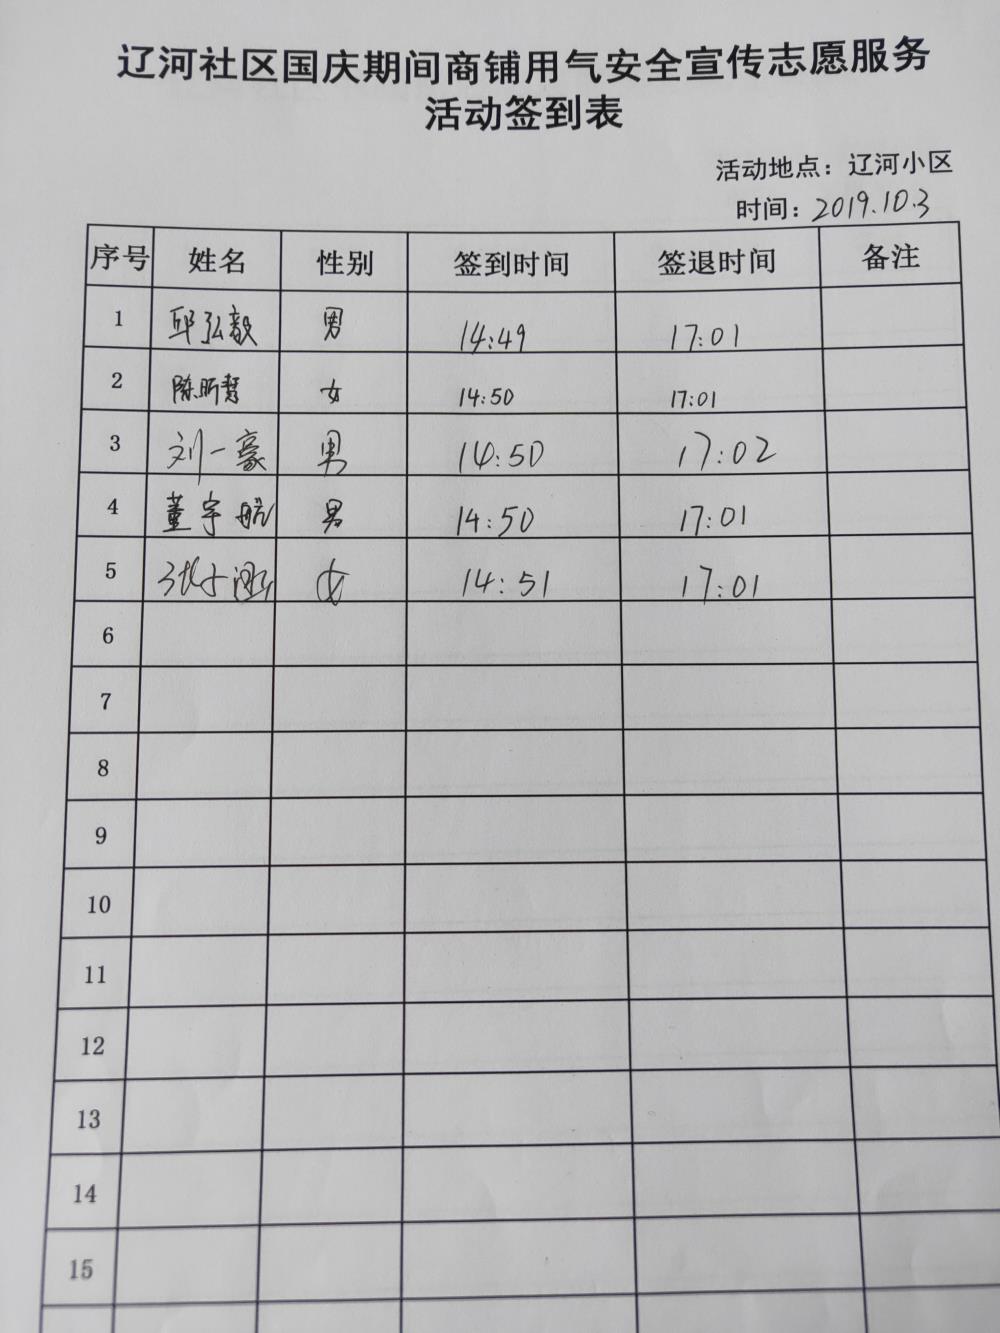 辽河社区国庆期间商铺用气安全宣传志愿服务
活动签到表
活动地点：辽河小区
时间：2019.10.3
序号 姓名 性别 签到时间 签退时间 备注
1 邱弘毅 男 14:49 17:01
2 陈昕慧 女 14:50 17:01
3 刘一豪 男 14:50 17:02
4 董宇航 男 14:50 17:01
5 女 14:51 17:01
6
7
8
9
10
11
12
13
14
15